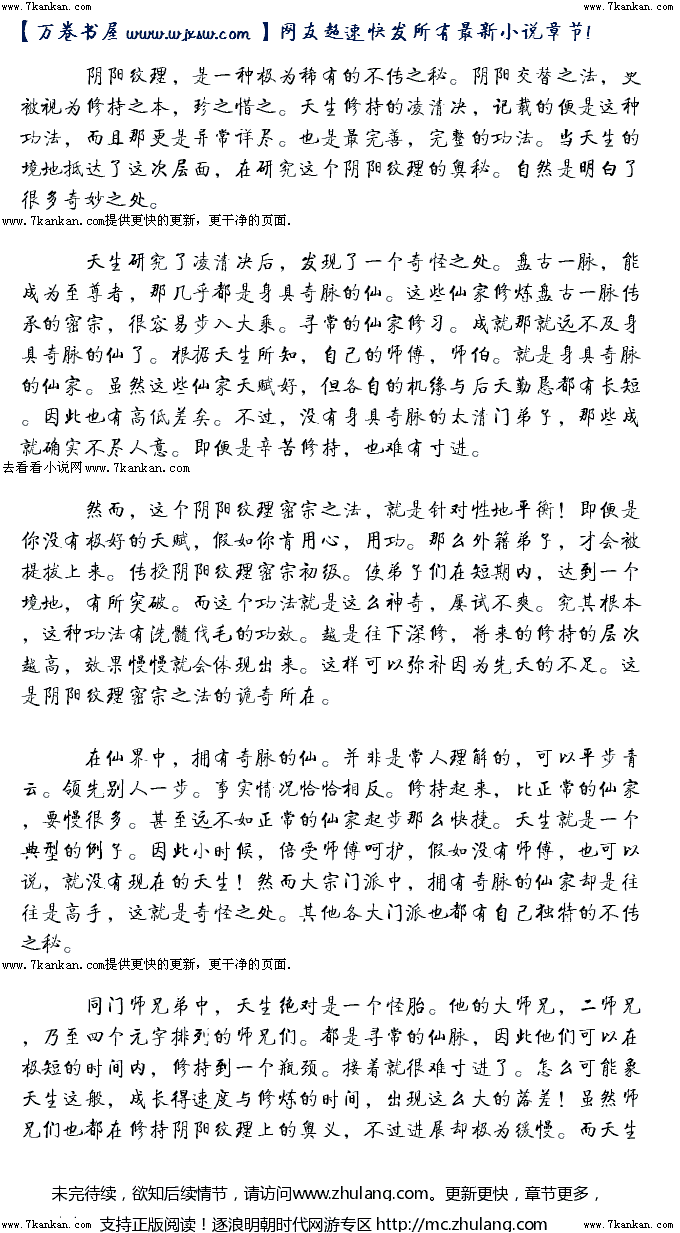 www.7kankan.com www.7kankan.com www.7kankan.com
【万卷书屋 www.wjxsw.com 】网友超速快发所有最新小说章节!
阴阳纹理，是一种极为稀有的不传之秘。阴阳交替之法，更
被视为修持之本，珍之惜之。天生修持的凌清决，记载的便是这种
功法，而且那更是异常详尽。也是最完善，完整的功法。当天生的
境地抵达了这次层面，在研究这个阴阳纹理的奥秘。自然是明白了
很多奇妙之处。
www.7kankan.com提供更快的更新，更干净的页面.
天生研究了凌清决后，发现了一个奇怪之处。盘古一脉，能
成为至尊者，那几乎都是身具奇脉的仙。这些仙家修炼盘古一脉传
承的密宗，很容易步入大乘。寻常的仙家修习。成就那就远不及身
具奇脉的仙了。根据天生所知，自己的师傅，师伯。就是身具奇脉
的仙家。虽然这些仙家天赋好，但各自的机缘与后天勤恳都有长短
。因此也有高低差矣。不过，没有身具奇脉的太清门弟子，那些成
就确实不尽人意。即便是辛苦修持，也难有寸进。
去看看小说网www.7kankan.com
然而，这个阴阳纹理密宗之法，就是针对性地平衡！即便是
你没有极好的天赋，假如你肯用心，用功。那么外籍弟子，才会被
提拔上来。传授阴阳纹理密宗初级。使弟子们在短期内，达到一个
境地，有所突破。而这个功法就是这么神奇，屡试不爽。究其根本
，这种功法有洗髓伐毛的功效。越是往下深修，将来的修持的层次
越高，效果慢慢就会体现出来。这样可以弥补因为先天的不足。这
是阴阳纹理密宗之法的诡奇所在。
在仙界中，拥有奇脉的仙。并非是常人理解的，可以平步青
云。领先别人一步。事实情况恰恰相反。修持起来，比正常的仙家
，要慢很多。甚至远不如正常的仙家起步那么快捷。天生就是一个
典型的例子。因此小时候，倍受师傅呵护，假如没有师傅，也可以
说，就没有现在的天生！然而大宗门派中，拥有奇脉的仙家却是往
往是高手，这就是奇怪之处。其他各大门派也都有自己独特的不传
之秘。
www.7kankan.com提供更快的更新，更干净的页面.
同门师兄弟中，天生绝对是一个怪胎。他的大师兄，二师兄
，乃至四个元字排列的师兄们。都是寻常的仙脉，因此他们可以在
极短的时间内，修持到一个瓶颈。接着就很难寸进了。怎么可能象
天生这般，成长得速度与修炼的时间，出现这么大的落差！虽然师
兄们也都在修持阴阳纹理上的奥义，不过进展却极为缓慢。而天生
未完待续，欲知后续情节，请访问www.zhulang.com。更新更快，章节更多，
www.7kankan.com 支持正版阅读！逐浪明朝时代网游专区 http://mc.zhulang.com www.7kankan.com